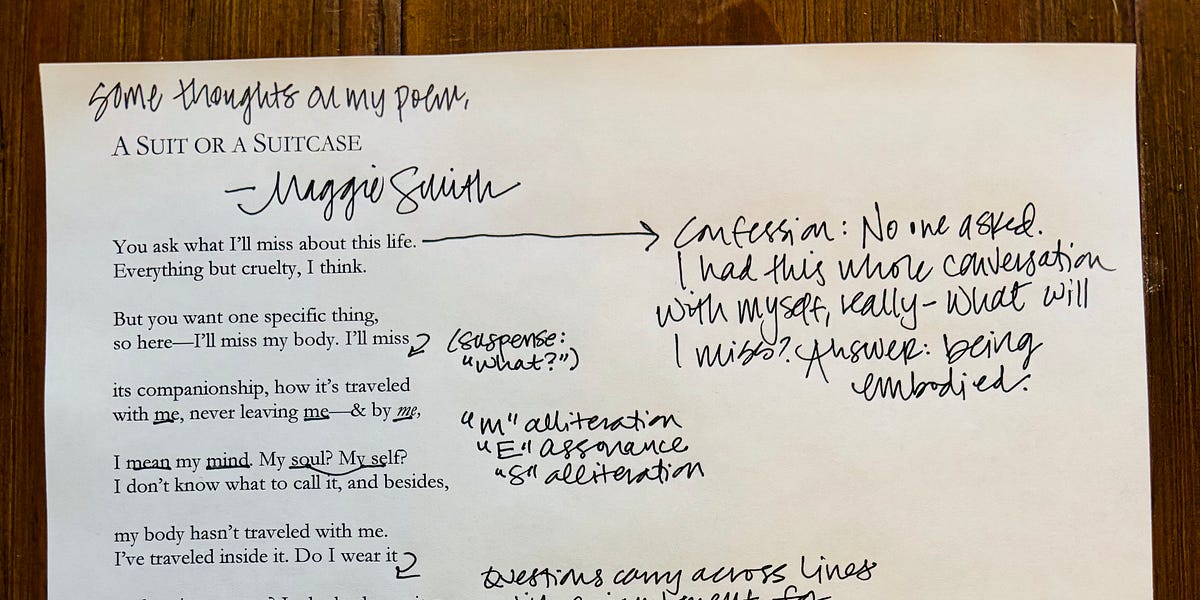 some thoughts on my poem,
A SUIT OR A SUITCASE
—Maggie Smith
You ask what I'll miss about this life.
Everything but cruelty, I think.
Confession: No one asked.
I had this whole conversation
with myself, really – what will
I miss? Answer: being
embodied.
But you want one specific thing,
so here—I'll miss my body. I'll miss
(suspense:
"what?")
its companionship, how it's traveled
with me, never leaving me—& by me,
"m" alliteration
"E" assonance
"S" alliteration
I mean my mind. My soul? My self?
I don't know what to call it, and besides,
my body hasn't traveled with me.
I've traveled inside it. Do I wear it
Questions carry across lines